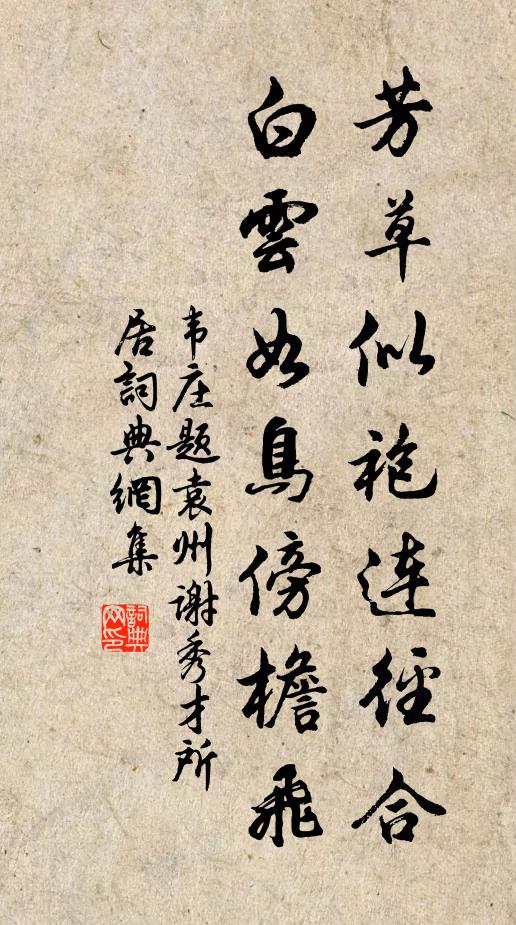 芳草似袍連徑合
白雲如鳥傍檐飛
韦庄题袁州谢秀才所
居詞典網集
詞典
网印